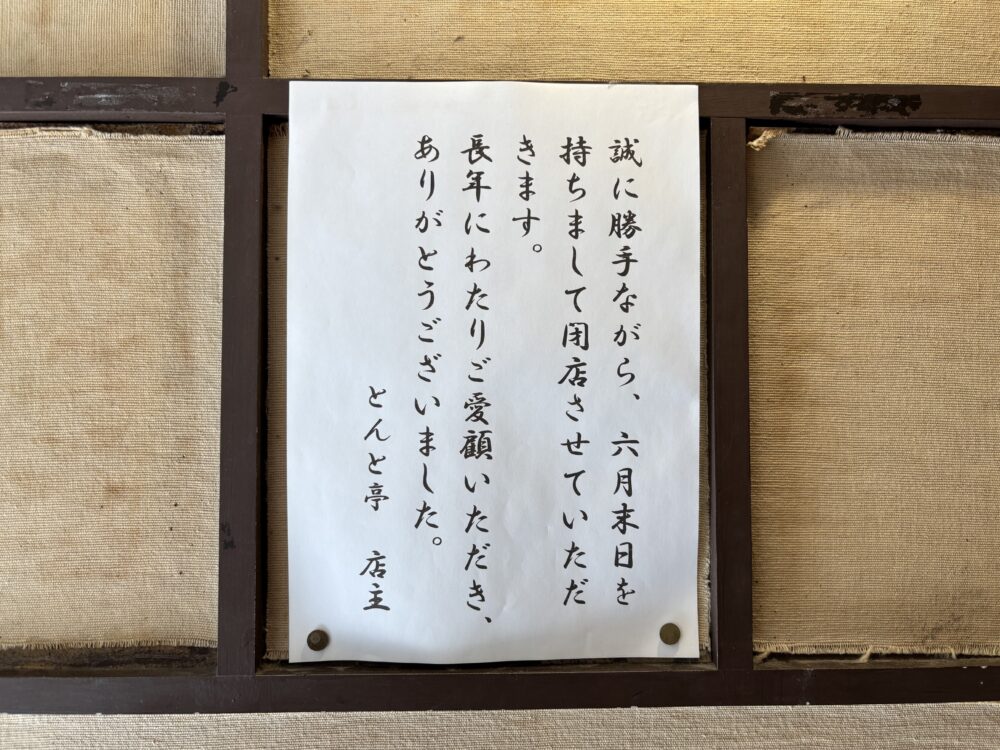 誠に勝手ながら、六月末日を
持ちまして閉店させていただ
きます。
長年にわたりご愛顧いただき、
ありがとうございました。
とんと亭　店主